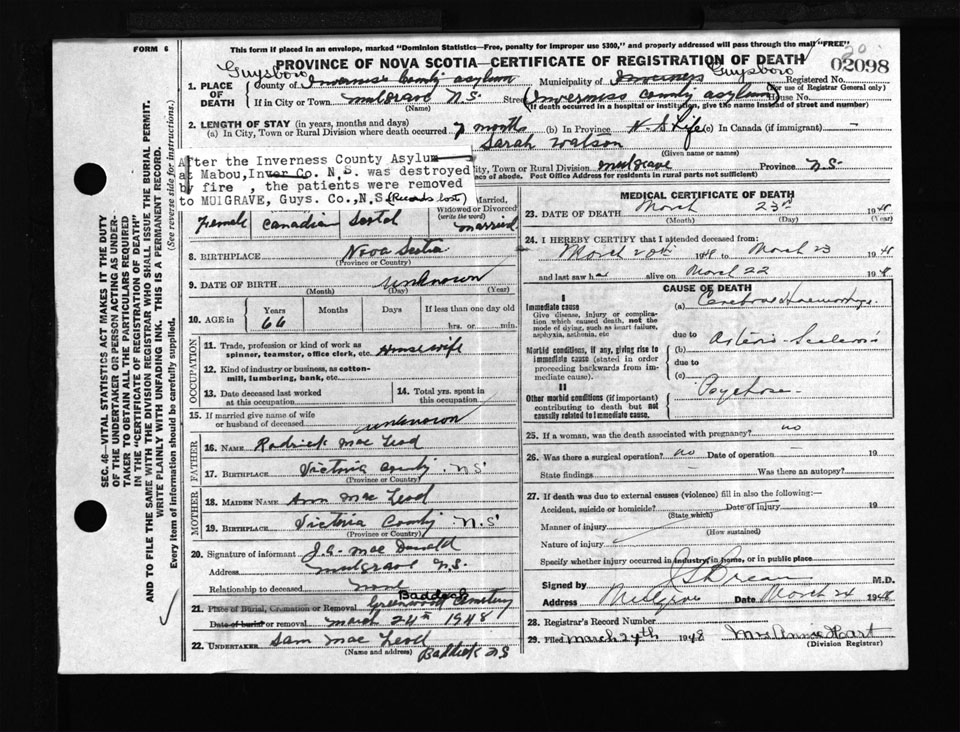 FORM 6
This form if placed in an envelope, marked "Dominion Statistics—Free, penalty for improper use $300," and properly addressed will pass through the mail "FREE"
PROVINCE OF NOVA SCOTIA—CERTIFICATE OF REGISTRATION OF DEATH
20
02098
Guysboro Guysboro
1. PLACE OF DEATH
County of Inverness County asylum Municipality of Inverness Registered No.
(For use of Registrar General only)
If in City or Town Mulgrave N.S. Street (Inverness County asylum) House No.
(Name) (If death occurred in a hospital or institution, give the name instead of street and number)
2. LENGTH OF STAY (in years, months and days)
(a) In City, Town or Rural Division where death occurred 7 months (b) In Province N.S. life (c) In Canada (if immigrant) —
Sarah Watson
(Given name or names)
After the Inverness County Asylum
at Mabou, Inver Co. N.S. was destroyed
by fire , the patients were removed
to MUlGRAVE, Guys. Co.,N.S. (Records lost)
City, Town or Rural Division Mulgrave Province N.S.
place of abode. Post Office Address for residents in rural parts not sufficient)
Married, Widowed or Divorced
(write the word)
Female Canadian Scotch married
8. BIRTHPLACE Nova Scotia
(Province or Country)
9. DATE OF BIRTH unknown
(Month) (Day) (Year)
10. AGE in Years Months Days If less than one day old
66 hrs. or min.
OCCUPATION
11. Trade, profession or kind of work as
spinner, teamster, office clerk, etc. Housewife
12. Kind of industry or business, as cotton-
mill, lumbering, bank, etc.
13. Date deceased last worked
at this occupation
14. Total yrs. spent in
this occupation
15. If married give name of wife
or husband of deceased unknown
FATHER
16. NAME Rodrick Mac Leod
17. BIRTHPLACE Victoria County N.S.
(Province or Country)
MOTHER
18. MAIDEN NAME Ann Mac Leod
19. BIRTHPLACE Victoria County N.S.
(Province or Country)
20. Signature of informant J.A. Mac Donald
Address Mulgrave N.S.
Relationship to deceased none
Baddeck
21. Place of Burial, Cremation or Removal Greenwood Cemetery
Date of burial or removal March 24th 1948
22. UNDERTAKER Sam Mac Leod
(Name and address) Baddeck N.S
MEDICAL CERTIFICATE OF DEATH
23. DATE OF DEATH March 23rd 1948
(Month) (Day) (Year)
24. I HEREBY CERTIFY that I attended deceased from:
March 20th 1948 to March 23 1948
and last saw her alive on March 22 1948
CAUSE OF DEATH
I
Immediate cause (a) Cerebral Haemorrhage
Give disease, injury or complica-
tion which caused death, not the
mode of dying, such as heart failure,
asphyxia, asthenia, etc
due to Arterio-Sclerosis
Morbid conditions, if any, giving rise to (b)
immediate cause (stated in order
proceeding backwards from im-
mediate cause).
due to
(c)
II
Other morbid conditions (if important)
contributing to death but not
causally related to immediate cause. Psychosis
25. If a woman, was the death associated with pregnancy? no
26. Was there a surgical operation? no Date of operation — 19
State findings Was there an autopsy?
27. If death was due to external causes (violence) fill in also the following:—
Accident, suicide or homicide? Date of injury 19
(State which)
Manner of injury
(How sustained)
Nature of injury
Specify whether injury occurred in industry, in home, or in public place
Signed by M.D.
Address Mulgrave Date March 24 1948
28. Registrar's Record Number
29. Filed March 24th 1948 Mrs Annie Hart
(Division Registrar)
SEC. 46—VITAL STATISTICS ACT MAKES IT THE DUTY
OF THE UNDERTAKER OR PERSON ACTING AS UNDER-
TAKER TO OBTAIN ALL THE PARTICULARS REQUIRED
IN THE "CERTIFICATE OF REGISTRATION OF DEATH"
AND TO FILE THE SAME WITH THE DIVISION REGISTRAR WHO SHALL ISSUE THE BURIAL PERMIT.
WRITE PLAINLY WITH UNFADING INK. THIS IS A PERMANENT RECORD.
Every item of information should be carefully supplied. (See reverse side for instructions.)